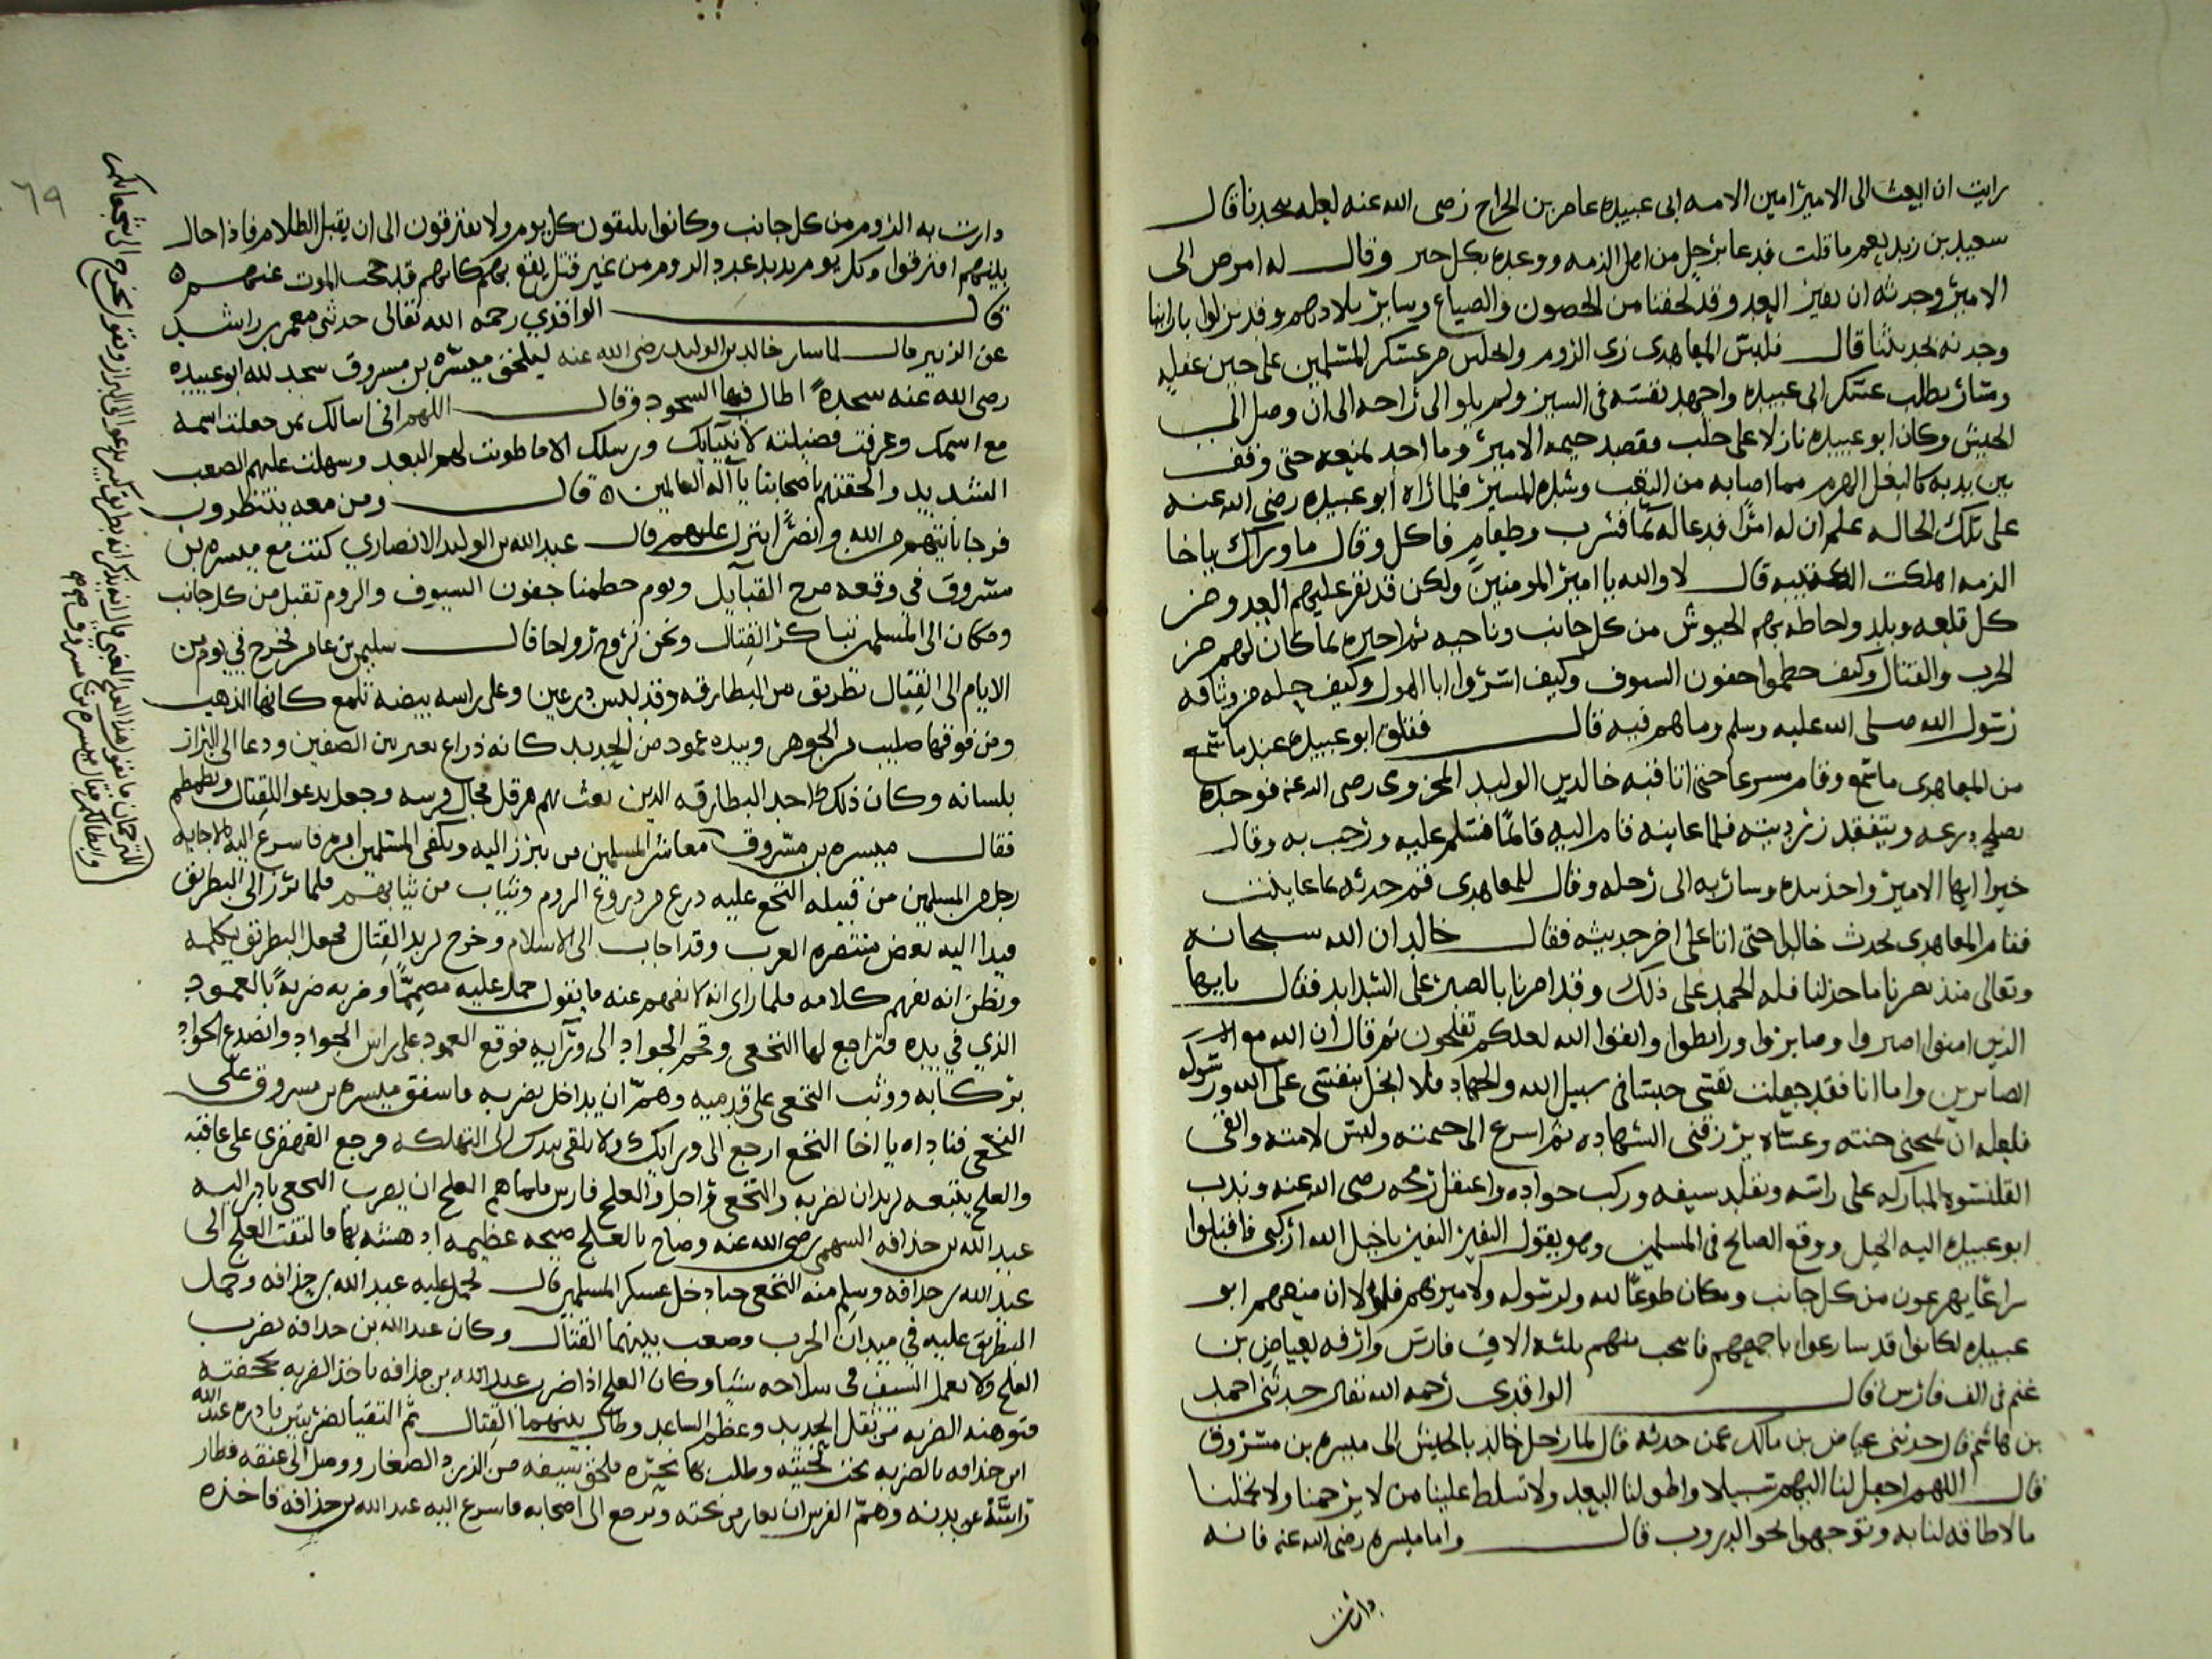 رايت ان ابعث الى الامير امين الامه ابى عبيده عامر بن الجراح رضى الله عنه لعله ينجدنا قال
سعيد بن زيد نعم ما قلت فدعا برجل من اهل الذمه ووعده بكل خير وقال له امض الى
الامير وحدثه ان نفير العدو قد لحقنا من الحصون والضياع وساير بلادهم وقد نزلوا بازاينا
وحدثه بحديثنا قال فلبس المعاهدى زى الروم وانملس من عسكر المسلمين على حين غفله
وسار يطلب عسكر ابى عبيده واجهد نفسه فى السير ولم يلو الى راحه الى ان وصل الى
الجيش وكان ابو عبيده نازلا على حلب فقصد خيمه الامير وما احد يمنعه حتى وقف
بين يديه كالبغل الهرم مما اصابه من التعب وشده المسير فلما راه ابو عبيده رضى الله عنه
على تلك الحاله علم ان له امرا فدعا له بما فشرب وطعام فاكل وقال ما وراك ياخا
الذمه اهلكت الكتيبه قال لا والله يا امير المومنين ولكن قد نفر عليهم العدو من
كل قلعه وبلد واحاطه بهم الجيوش من كل جانب وناحيه ثم اخبره بما كان لهم من
الحرب والقتال وكيف حطموا جفون السيوف وكيف اسروا ابا الهول وكيف حله من وثاقه
رسول الله صلى الله عليه وسلم وما هم فيه قال فقلق ابو عبيده عند ما سمع
من المعاهدى ما سمع وقام مسرعا حتى اتا قبه خالد بن الوليد المخزومى رضى الله عنه فوجده
يصلح درعه ويتفقد زرديته فلما عاينه قام اليه قائما فسلم عليه ورحب به وقال
خيرا ايها الامير واخذ بيده وسار به الى رحله وقال للمعاهدى قم حدثه بما عاينت
فقام المعاهدى يحدث خالدا حتى اتا على اخر حديثه فقال خالد ان الله سبحانه
وتعالى منذ نصرنا ما خذلنا فله الحمد على ذلك وقد امرنا بالصبر على الشدايد فقال ياايها
الذين امنوا اصبروا وصابروا ورابطوا واتقوا الله لعلكم تفلحون ثم قال ان الله مع
الصابرين واما انا فقد جعلت نفسى حبسا فى سبيل الله والجهاد فلا ابخل بنفسى على الله ورسوله
فلعله ان يمنحنى جنته وعساه يرزقنى الشهاده ثم اسرع الى خيمته ولبس لامته والقى
القلنسوه المباركه على راسه وتقلد سيفه وركب جواده واعتقل رمحه رضى الله عنه وندب
ابو عبيده اليه الخيل ووقع الصايح فى المسلمين وهو يقول النفير النفير ياخيل الله اركبى فاقبلوا
سراعا يهرعون من كل جانب ومكان طوعا لله ولرسوله ولاميرهم فلولا ان منهم ابو
عبيده لكانوا قد سارعوا باجمعهم فانتخب منهم ثلثه الاف فارس واردفه بعياض بن
غنم فى الف فارس قال الواقدى رحمه الله تعالى حدثنى احمد
بن هاشم قال حدثنى عياض بن مالك عمن حدثه قال لما رحل خالد بالجيش الى ميسره بن مسروق
قال اللهم اجعل لنا اليهم سبيلا واطو لنا البعيد ولا تسلط علينا من لا يرحمنا ولا تحملنا
مالا طاقه لنا به وتوجهوا نحو الدروب قال واما ميسره رضى الله عنه فانه
دارت
٦٩
دارت به الروم من كل جانب وكانوا يلتقون كل يوم ولا يفترقون الى ان يقبل الظلام فاذا حال
بينهم افترقوا وكل يوم يزيد عدد الروم من غير قتل يقع بهم كانهم قد حجب الموت عنهم
قال الواقدي رحمه الله تعالى حدثنى معمر بن راشد
عن الزبير قال لما سار خالد بن الوليد رضى الله عنه ليلحق ميسره بن مسروق سجد لله ابو عبيده
رضى الله عنه سجدة اطال فيها السجود وقال اللهم انى اسالك بمن جعلت اسمه
مع اسمك وعرفت فضيلته لانبيايك ورسلك الا ما طويت لهم البعيد وسهلت عليهم الصعب
الشديد والحقتهم باصحابنا يا اله العالمين قال ومن معه ينتظرون
فرجا ياتيهم من الله ونصرا ينزل عليهم قال عبد الله بن الوليد الانصاري كنت مع ميسره بن
مسروق فى وقعه مرج القبايل ويوم حطمنا جفون السيوف والروم تقبل من كل جانب
ومكان الى المسلمين تباكر القتال ونحن نروح رواحا قال سليمن بن عامر فخرج في يوم من
الايام الى القتال بطريق من البطارقه وقد لبس درعين وعلى راسه بيضه تلمع كانها الذهب
ومن فوقها صليب من الجوهر وبيده عمود من الحديد كانه ذراع بعير بين الصفين ودعا الى البراز
بلسانه وكان ذلك احد البطارقه الذين بعث بهم هرقل فجال بفرسه وجعل يدعو للقتال ويطمطم
فقال ميسره بن مسروق معاشر المسلمين من يبرز اليه ويكفى المسلمين امره فاسرع اليه بالاجابه
رجل من المسلمين من قبيله النخع عليه درع من دروع الروم وثياب من ثيابهم فلما برز الى البطريق
فبدا اليه بعض متنصره العرب وقد اجاب الى الاسلام وخرج يريد القتال فجعل البطريق يكلمه
ويظن انه يفهم كلامه فلما راى انه لا يفهم عنه ما يقول حمل عليه مصمما وضربه ضربة بالعمود
الذي في يده فتراجع لها النخعى وقحم الجواد الى ورآيه فوقع العمود على راس الجواد وانصدع الجواد
بركابه ووثب النخعى على قدميه وهم ان يداخل بضربه فاشفق ميسره بن مسروق على
النخعى فناداه يا اخا النخع ارجع الى ورايك ولا تلقى بيدك الى التهلكه فرجع القهقرى على عاقبه
والعلج يتبعه يريد ان يضربه والنخعى راجل والعلج فارس فلما هم العلج ان يضرب النخعى بادر اليه
عبد الله بن حذافه السهمى رضى الله عنه وصاح بالعلج صيحه عظيمه ادهشته بها فالتفت العلج الى
عبد الله بن حذافه وسلم منه النخعى حتا دخل عسكر المسلمين قال فحمل عليه عبد الله بن حذافه وحمل
البطريق عليه في ميدان الحرب وصعب بينهما القتال وكان عبد الله بن حذافه يضرب
العلج ولا يعمل السيف فى سلاحه شيئا وكان العلج اذا ضرب عبد الله بن حذافه ياخذ الضربه بجحفته
فتوهنه الضربه من ثقل الحديد وعظم الساعد وطال بينهما القتال ثم التقيا بضربتين بادره عبد الله
ابن حذافه بالضربه تحت لحيته وطلب بها نحره فلحق سيفه من الزرد الصغار ووصل الى عنقه فطار
راسه عن بدنه وهم الفرس ان يعار من تحته ويرجع الى اصحابه فاسرع اليه عبد الله بن حذافه فاخذه